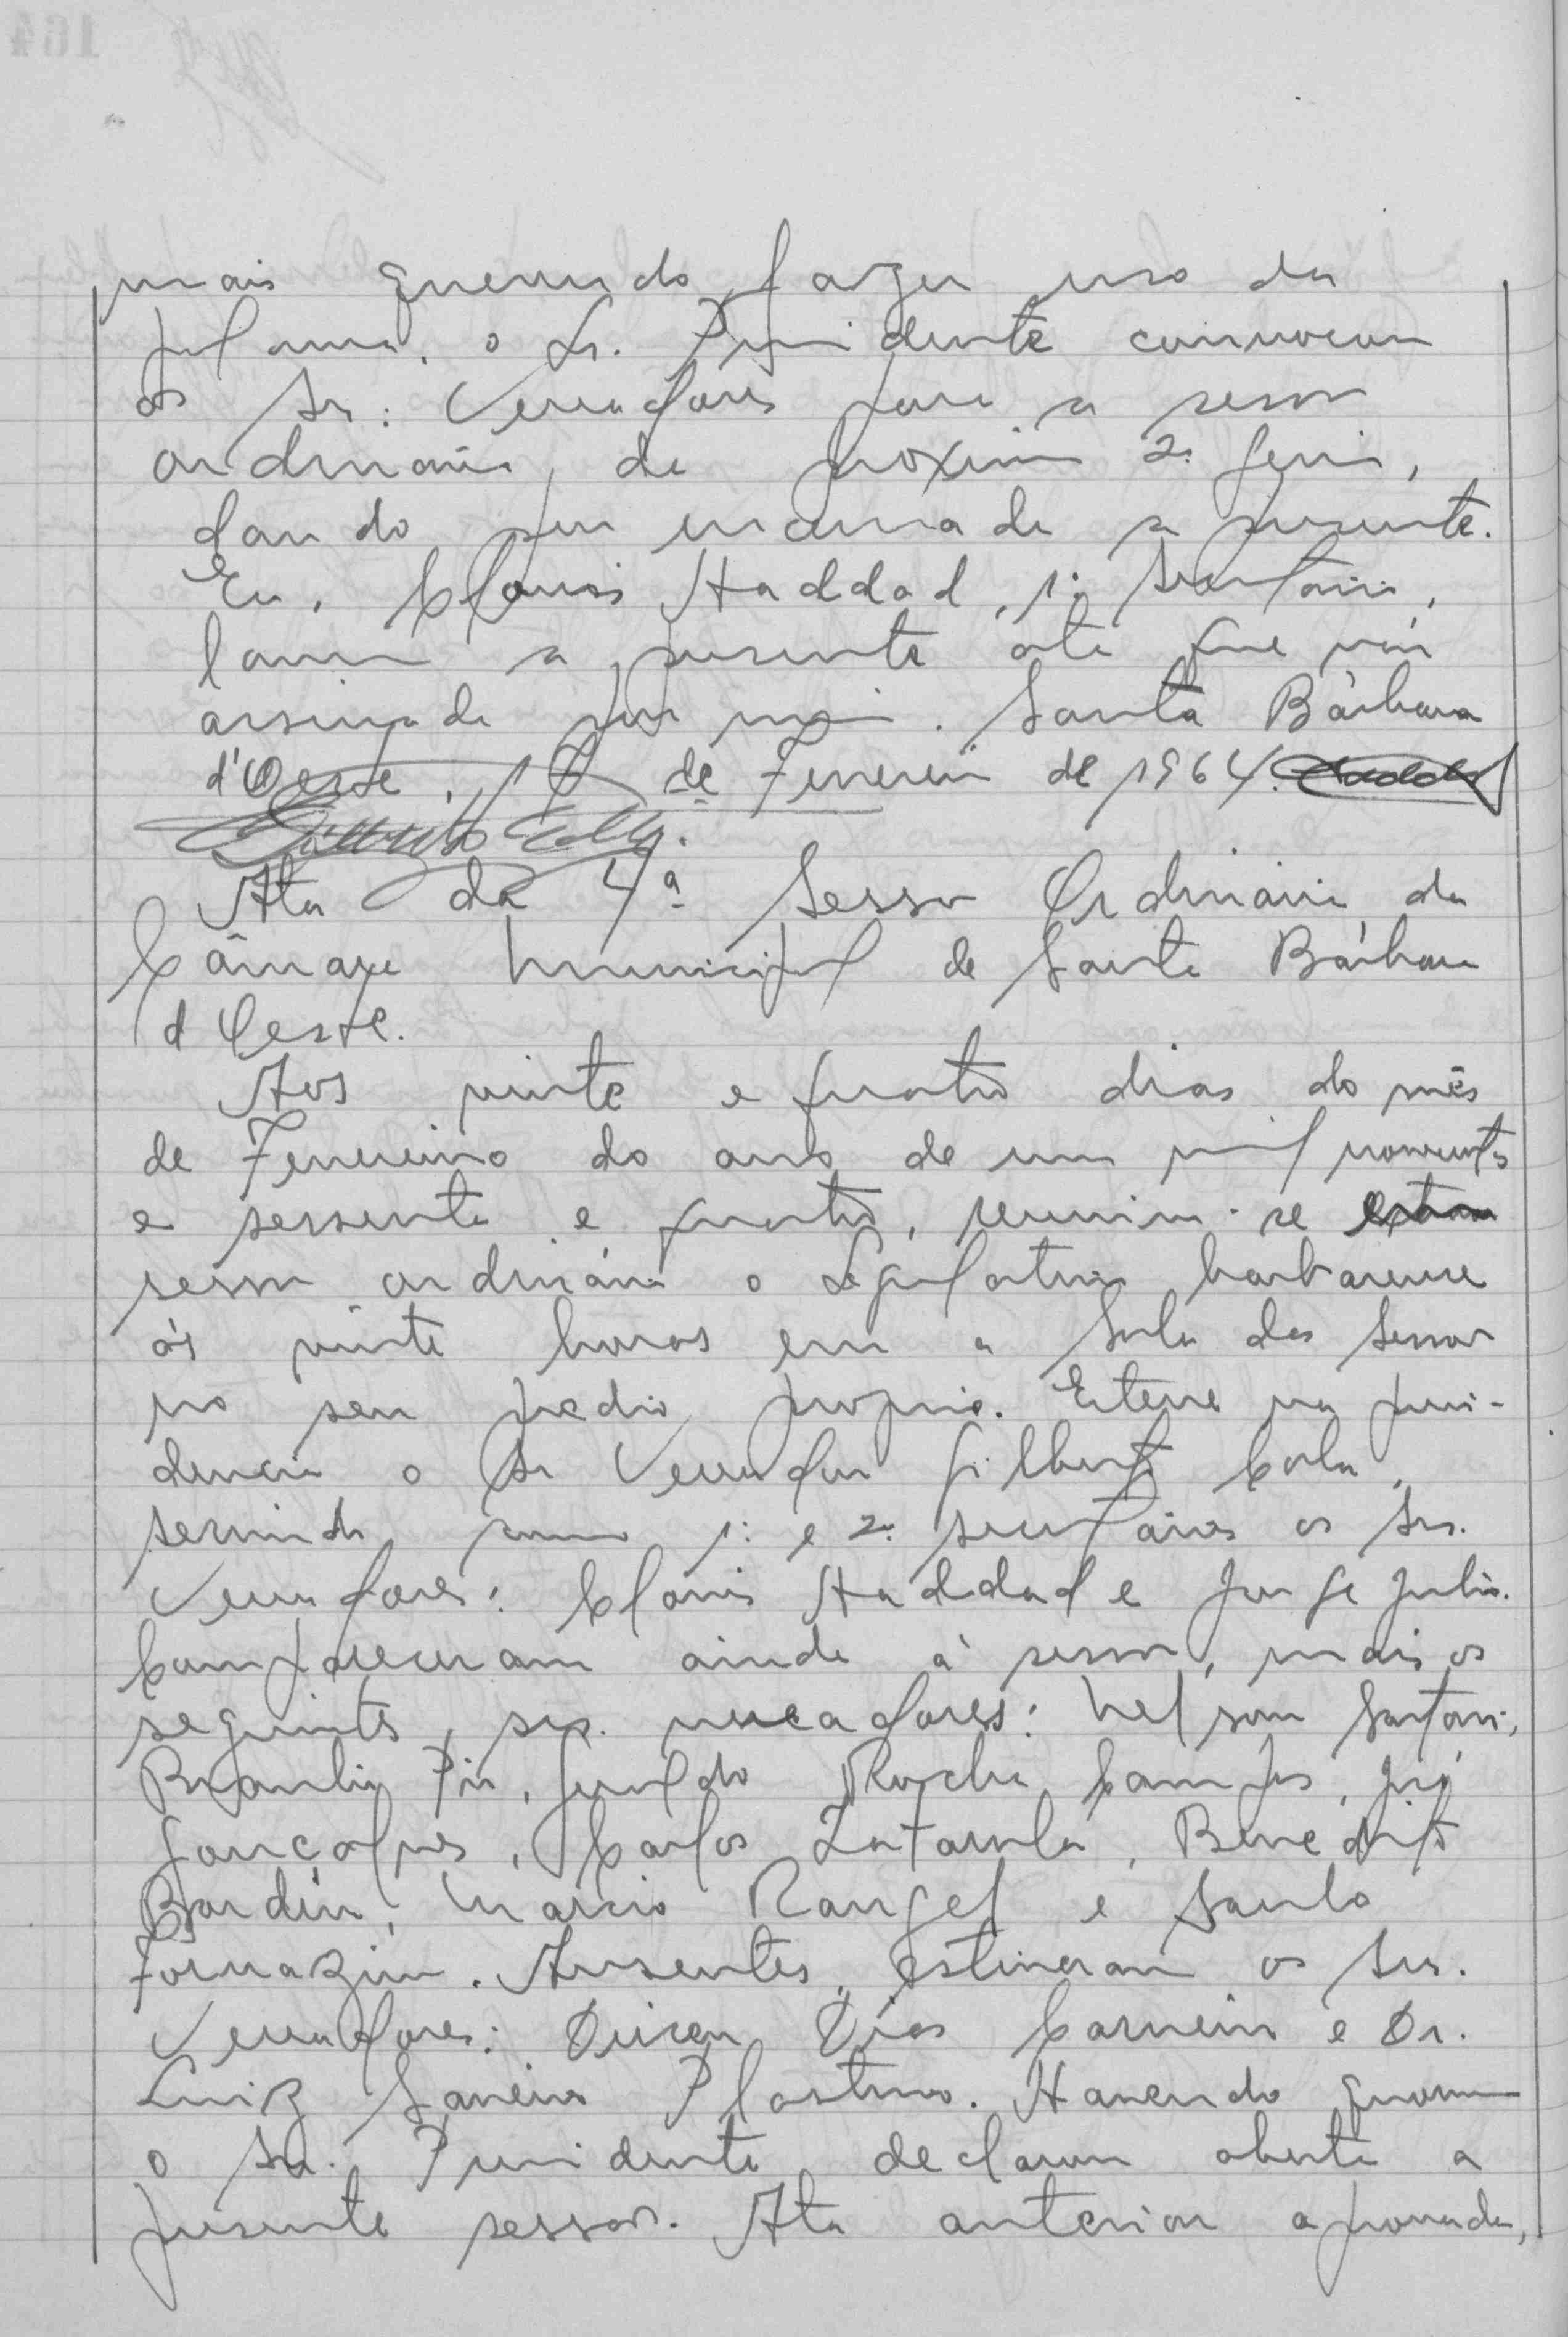 mais querendo fazer uso da
palavra, o Sr. Presidente convocou
os Srs. Vereadores para a sessão
ordinária, da próxima 2ª feira,
dando por encerrada a presente.
Eu, Clovis Haddad, 1º Secretário,
lavrei a presente ata que vai
assinada por mim. Santa Bárbara
d'Oeste, de Fevereiro de 1964. Haddad
Ata da 4ª Sessão Ordinária da
Câmara Municipal de Santa Bárbara
d'Oeste.
Aos vinte e quatro dias do mês
de Fevereiro do ano de um mil novecentos
e sessenta e quatro, reuniu-se
sessão ordinária o Legislativo barbarense
às vinte horas em a Sala das Sessões
no seu predio proprio. Esteve na presi-
dencia o Sr Vereador Gilberto Colla,
servindo como 1º e 2º secretários os Srs.
Vereadores: Clovis Haddad e Jorge Julio.
Compareceram ainda à sessão, mais os
seguintes srs. vereadores: Nelson Sartori,
Braulio Pio, Geraldo Rocha Campos, José
Gonçalves, Carlos Zatarola, Benedito
Bardin, Marcio Rangel e Santo
Fornazim. Ausentes, estiveram os Srs.
Vereadores: Dirceu Dias Carneiro e Dr.
Luiz Saneiro Plastino. Havendo quorum
o Sr. Presidente declarou aberta a
presente sessão. Ata anterior aprovada,